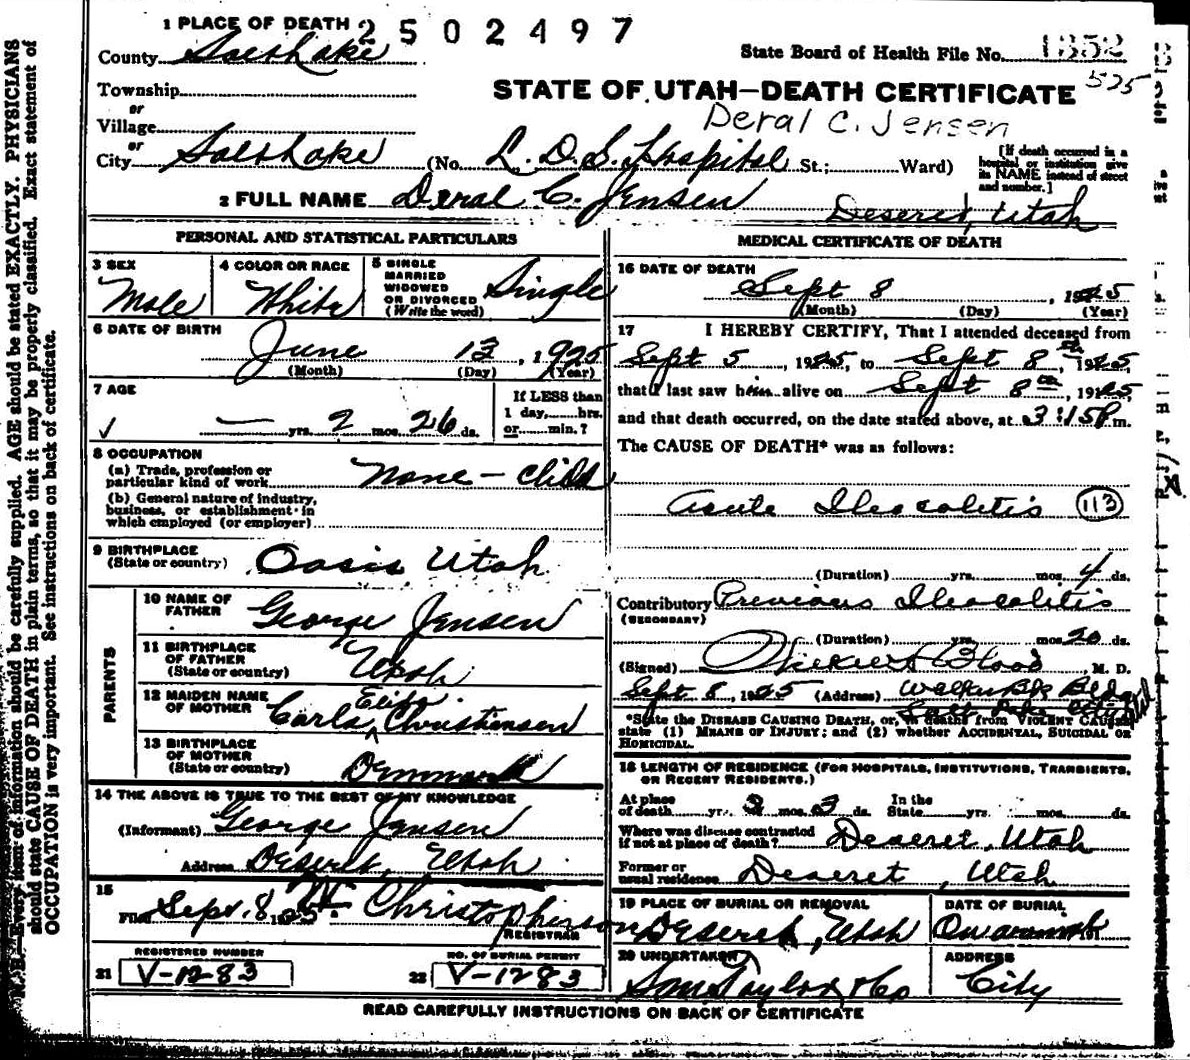 1 PLACE OF DEATH 2502497
County Salt Lake State Board of Health File No. 1352
Township 525
STATE OF UTAH—DEATH CERTIFICATE
or
Village
Deral C. Jensen
or
City Salt Lake (No. L. D. S. Hospital St.; Ward) [If death occurred in a hospital or institution give its NAME instead of street and number.]
2 FULL NAME Deral C. Jensen Deseret, Utah
PERSONAL AND STATISTICAL PARTICULARS
3 SEX Male
4 COLOR OR RACE White
5 SINGLE MARRIED WIDOWED OR DIVORCED (Write the word) Single
6 DATE OF BIRTH
June 13, 1925
(Month) (Day) (Year)
7 AGE
— yrs. 2 mos. 26 ds.
If LESS than 1 day, hrs. or min.?
8 OCCUPATION
(a) Trade, profession or particular kind of work None - Child
(b) General nature of industry, business, or establishment in which employed (or employer)
9 BIRTHPLACE
(State or country) Oasis Utah
PARENTS
10 NAME OF FATHER George Jensen
11 BIRTHPLACE OF FATHER (State or country) Utah
12 MAIDEN NAME OF MOTHER Christensen
13 BIRTHPLACE OF MOTHER (State or country) Denmark
14 THE ABOVE IS TRUE TO THE BEST OF MY KNOWLEDGE
(Informant) George Jensen
Address Deseret, Utah
15
Filed Sept. 8 1925 Christopherson
REGISTRAR
REGISTERED NUMBER
21 V-1283
NO. OF BURIAL PERMIT
22 V-1283
MEDICAL CERTIFICATE OF DEATH
16 DATE OF DEATH
Sept 8, 1925
(Month) (Day) (Year)
17 I HEREBY CERTIFY, That I attended deceased from
Sept 5, 1925, to Sept 8th, 1925,
that I last saw him alive on Sept 8th, 1925,
and that death occurred, on the date stated above, at 3:15 P m.
The CAUSE OF DEATH* was as follows:
Acute Ileocolitis 113
(Duration) yrs. mos. 4 ds.
Contributory Previous Ileocolitis
(SECONDARY)
(Duration) yrs. mos. 20 ds.
(Signed) Blood, M. D.
Sept 8, 1925 (Address) Walker Bk Bldg
Salt Lake City
*State the DISEASE CAUSING DEATH, or, in deaths from VIOLENT CAUSES state (1) MEANS OF INJURY; and (2) whether ACCIDENTAL, SUICIDAL OR HOMICIDAL.
18 LENGTH OF RESIDENCE (FOR HOSPITALS, INSTITUTIONS, TRANSIENTS, OR RECENT RESIDENTS.)
At place of death yrs. mos. 3 ds. In the State yrs. mos. ds.
Where was disease contracted if not at place of death? Deseret, Utah
Former or usual residence Deseret, Utah
19 PLACE OF BURIAL OR REMOVAL Deseret, Utah
DATE OF BURIAL
20 UNDERTAKER Taylor & Co
ADDRESS City
READ CAREFULLY INSTRUCTIONS ON BACK OF CERTIFICATE
N. B.—Every item of information should be carefully supplied. AGE should be stated EXACTLY. PHYSICIANS
should state CAUSE OF DEATH in plain terms, so that it may be properly classified. Exact statement of
OCCUPATION is very important. See instructions on back of certificate.